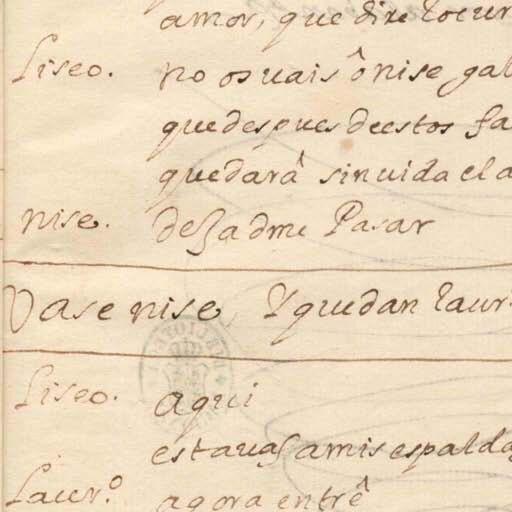 amor, que dire locur
Liseo. no os uais ô nise gal
quedespues deestos fa
quedarâ sin uida el a
nise. dexadme Pasar
Vase nise, Y quedan laur.
Liseo. aqui
estauas amis espaldas
Laur.º agora entrê